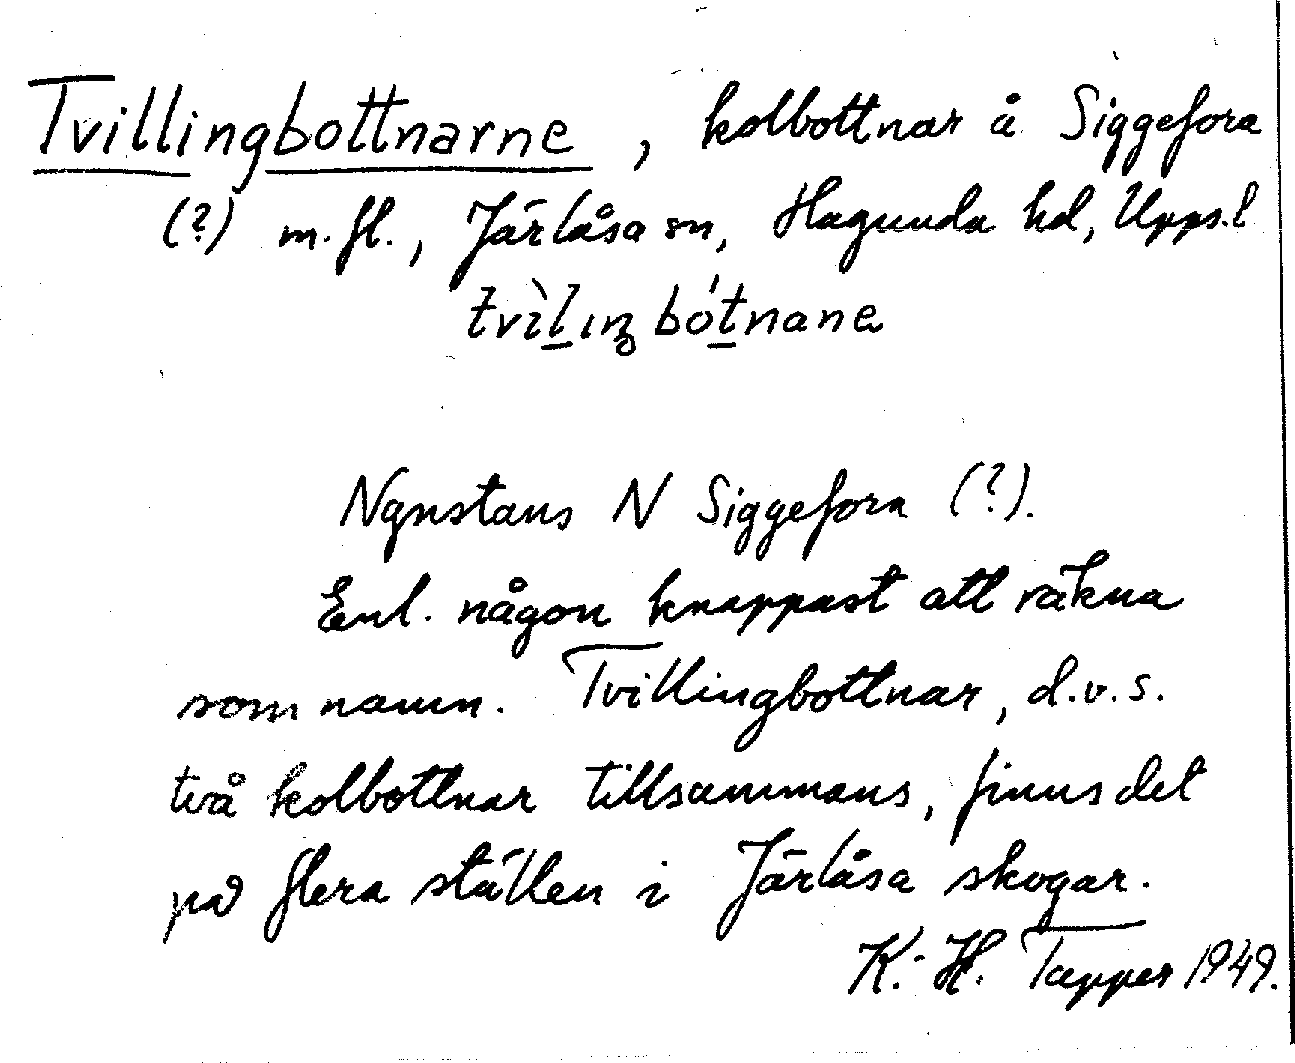 Tvillingbottnarne, kolbottnar å Siggefora
(?) m.fl., Järlåsa sn, Hagunda hd, Upps.l
tvìlıŋbótnane
Ngnstans N Siggefora (?).
Enl. någon knappast att räkna
som namn. Tvillingbottnar, d.v.s.
två kolbottnar tillsammans, finns det
på flera ställen i Järlåsa skogar.
K.-H. Tapper 1949.